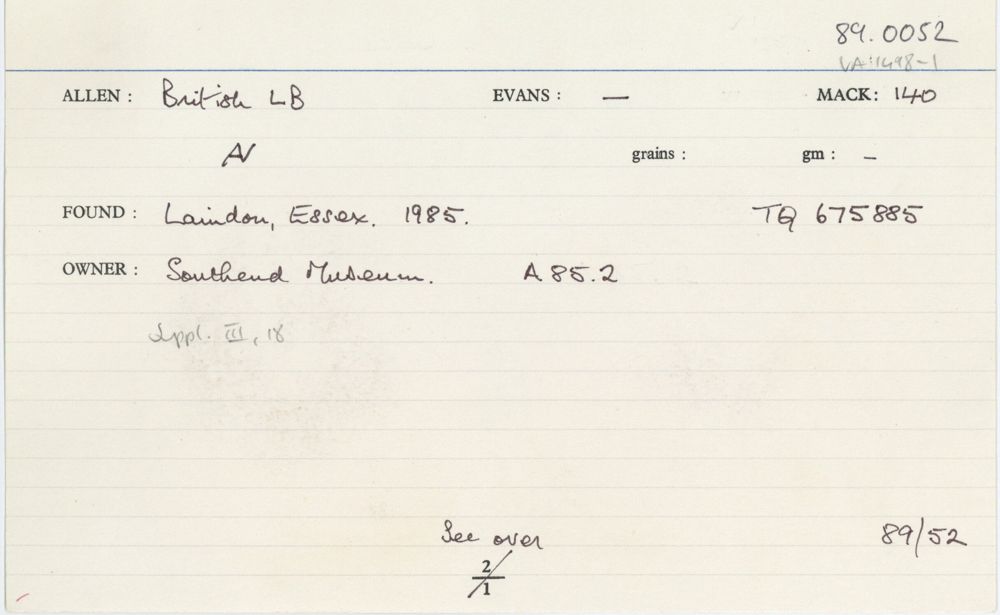 89.0052
VA:1498-1
ALLEN : British LB EVANS : — MACK: 140
AV grains : gm : –
FOUND : Laindon, Essex. 1985. TQ 675885
OWNER : Southend Museum. A 85.2
Suppl. III, 18
See over 89/52
2/1